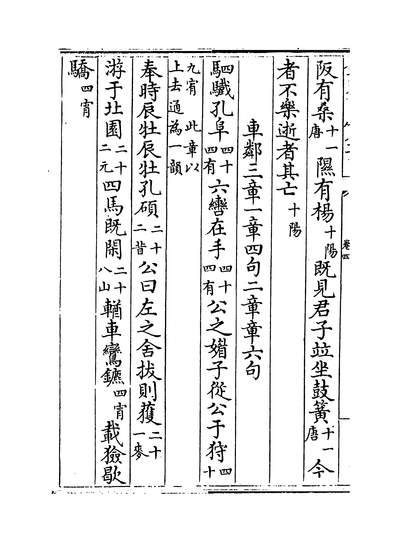 阪有桑十一唐隰有楊十陽既見君子竝坐鼓簧十一唐今
者不樂逝者其亡十陽
車鄰三章一章四句二章章六句
駟驖孔阜四十四有六轡在手四十四有公之媚子從公于狩四十
九宥 此章以上去通為一韻
奉時辰牡辰牡孔碩二十二昔公曰左之舍拔則獲二十一麥
游于北園二十二元四馬既閑二十八山輶車鸞鑣四宵載獫歇
驕四宵
卷四